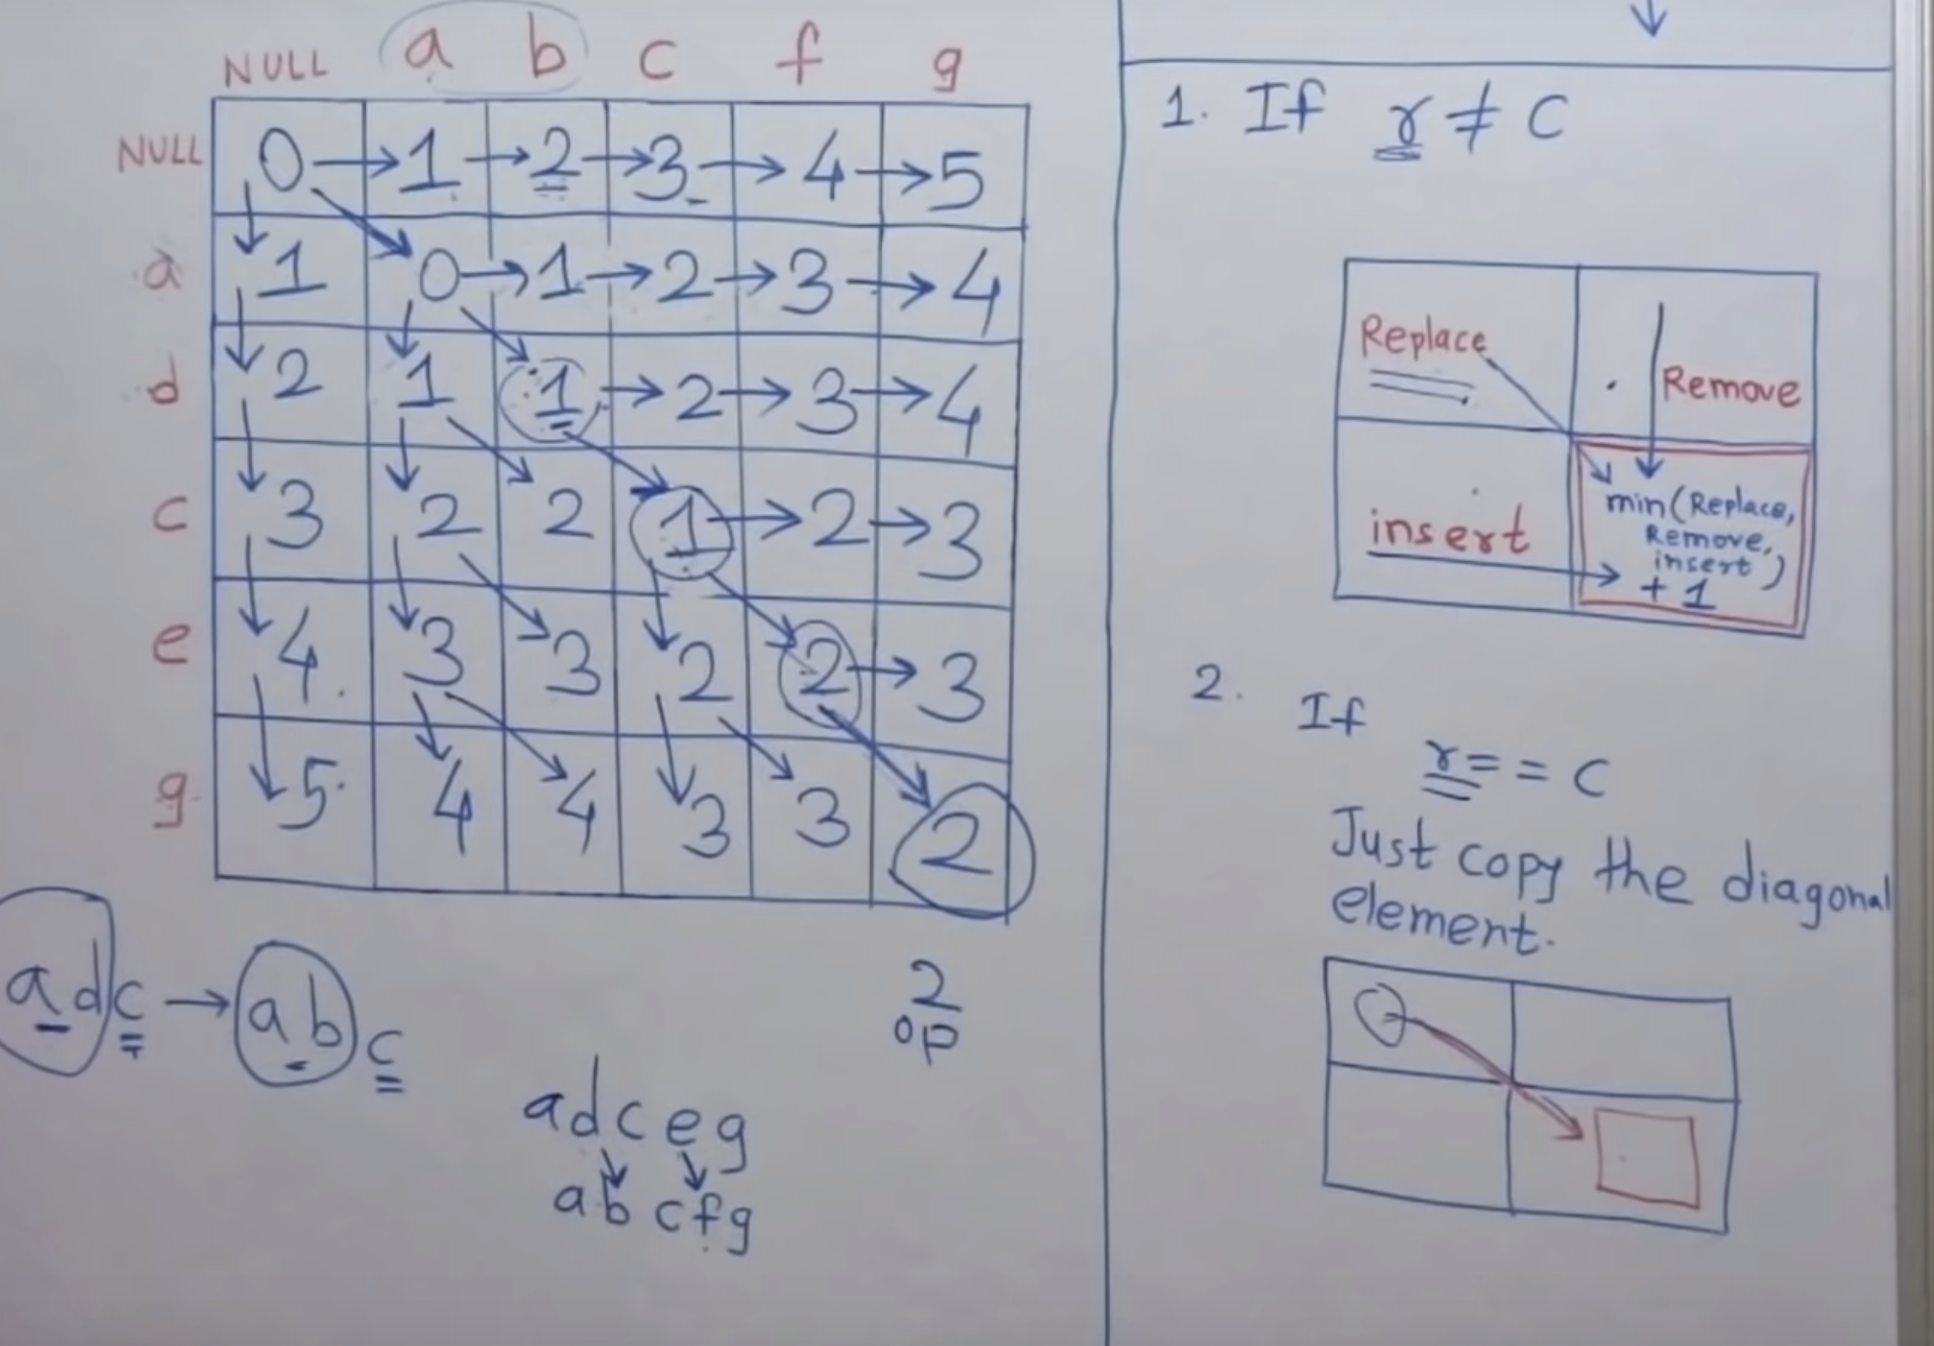 NULL a b c f g
NULL 0 1 2 3 4 5
a 1 0 1 2 3 4
d 2 1 1 2 3 4
c 3 2 2 1 2 3
e 4 3 3 2 2 3
g 5 4 4 3 3 2
adc → abc
2
OP
adceg
abcfg
1. If r ≠ C
Replace
Remove
insert
min(Replace,
Remove,
insert)
+ 1
2. If
r == C
Just copy the diagonal
element.